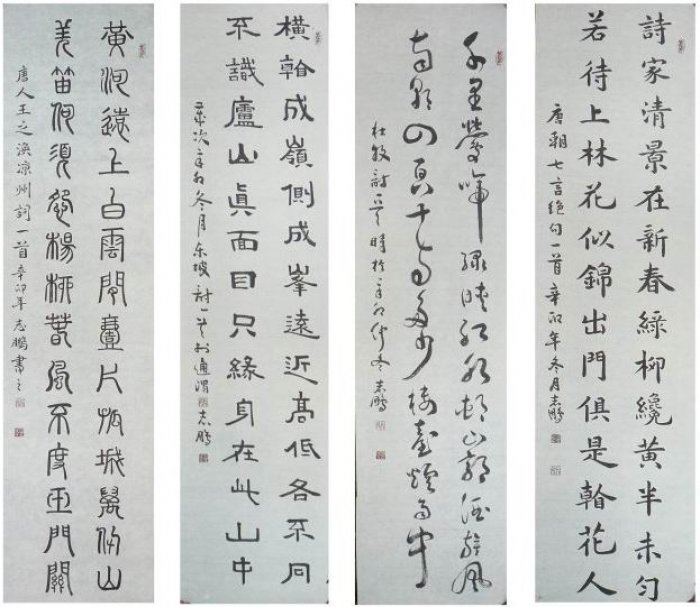 詩家清景在新春綠柳纔黃半未匀
若待上林花似錦出門俱是看花人
唐朝七言绝句一首辛卯年冬月志鹏
千里鶯啼綠映红水村山郭酒旗風
南朝四百八十寺多少楼臺烟雨中
杜牧詩一首時於辛卯仲冬志鹏
横看成嶺側成峯遠近高低各不同
不識廬山真面目只緣身在此山中
歲次辛卯冬月东坡詩一首於通渭志鹏
黄河遠上白雲間壹片孤城萬仞山
羌笛何須怨楊柳春風不度玉門關
唐人王之涣凉州詞一首辛卯年志鹏書之